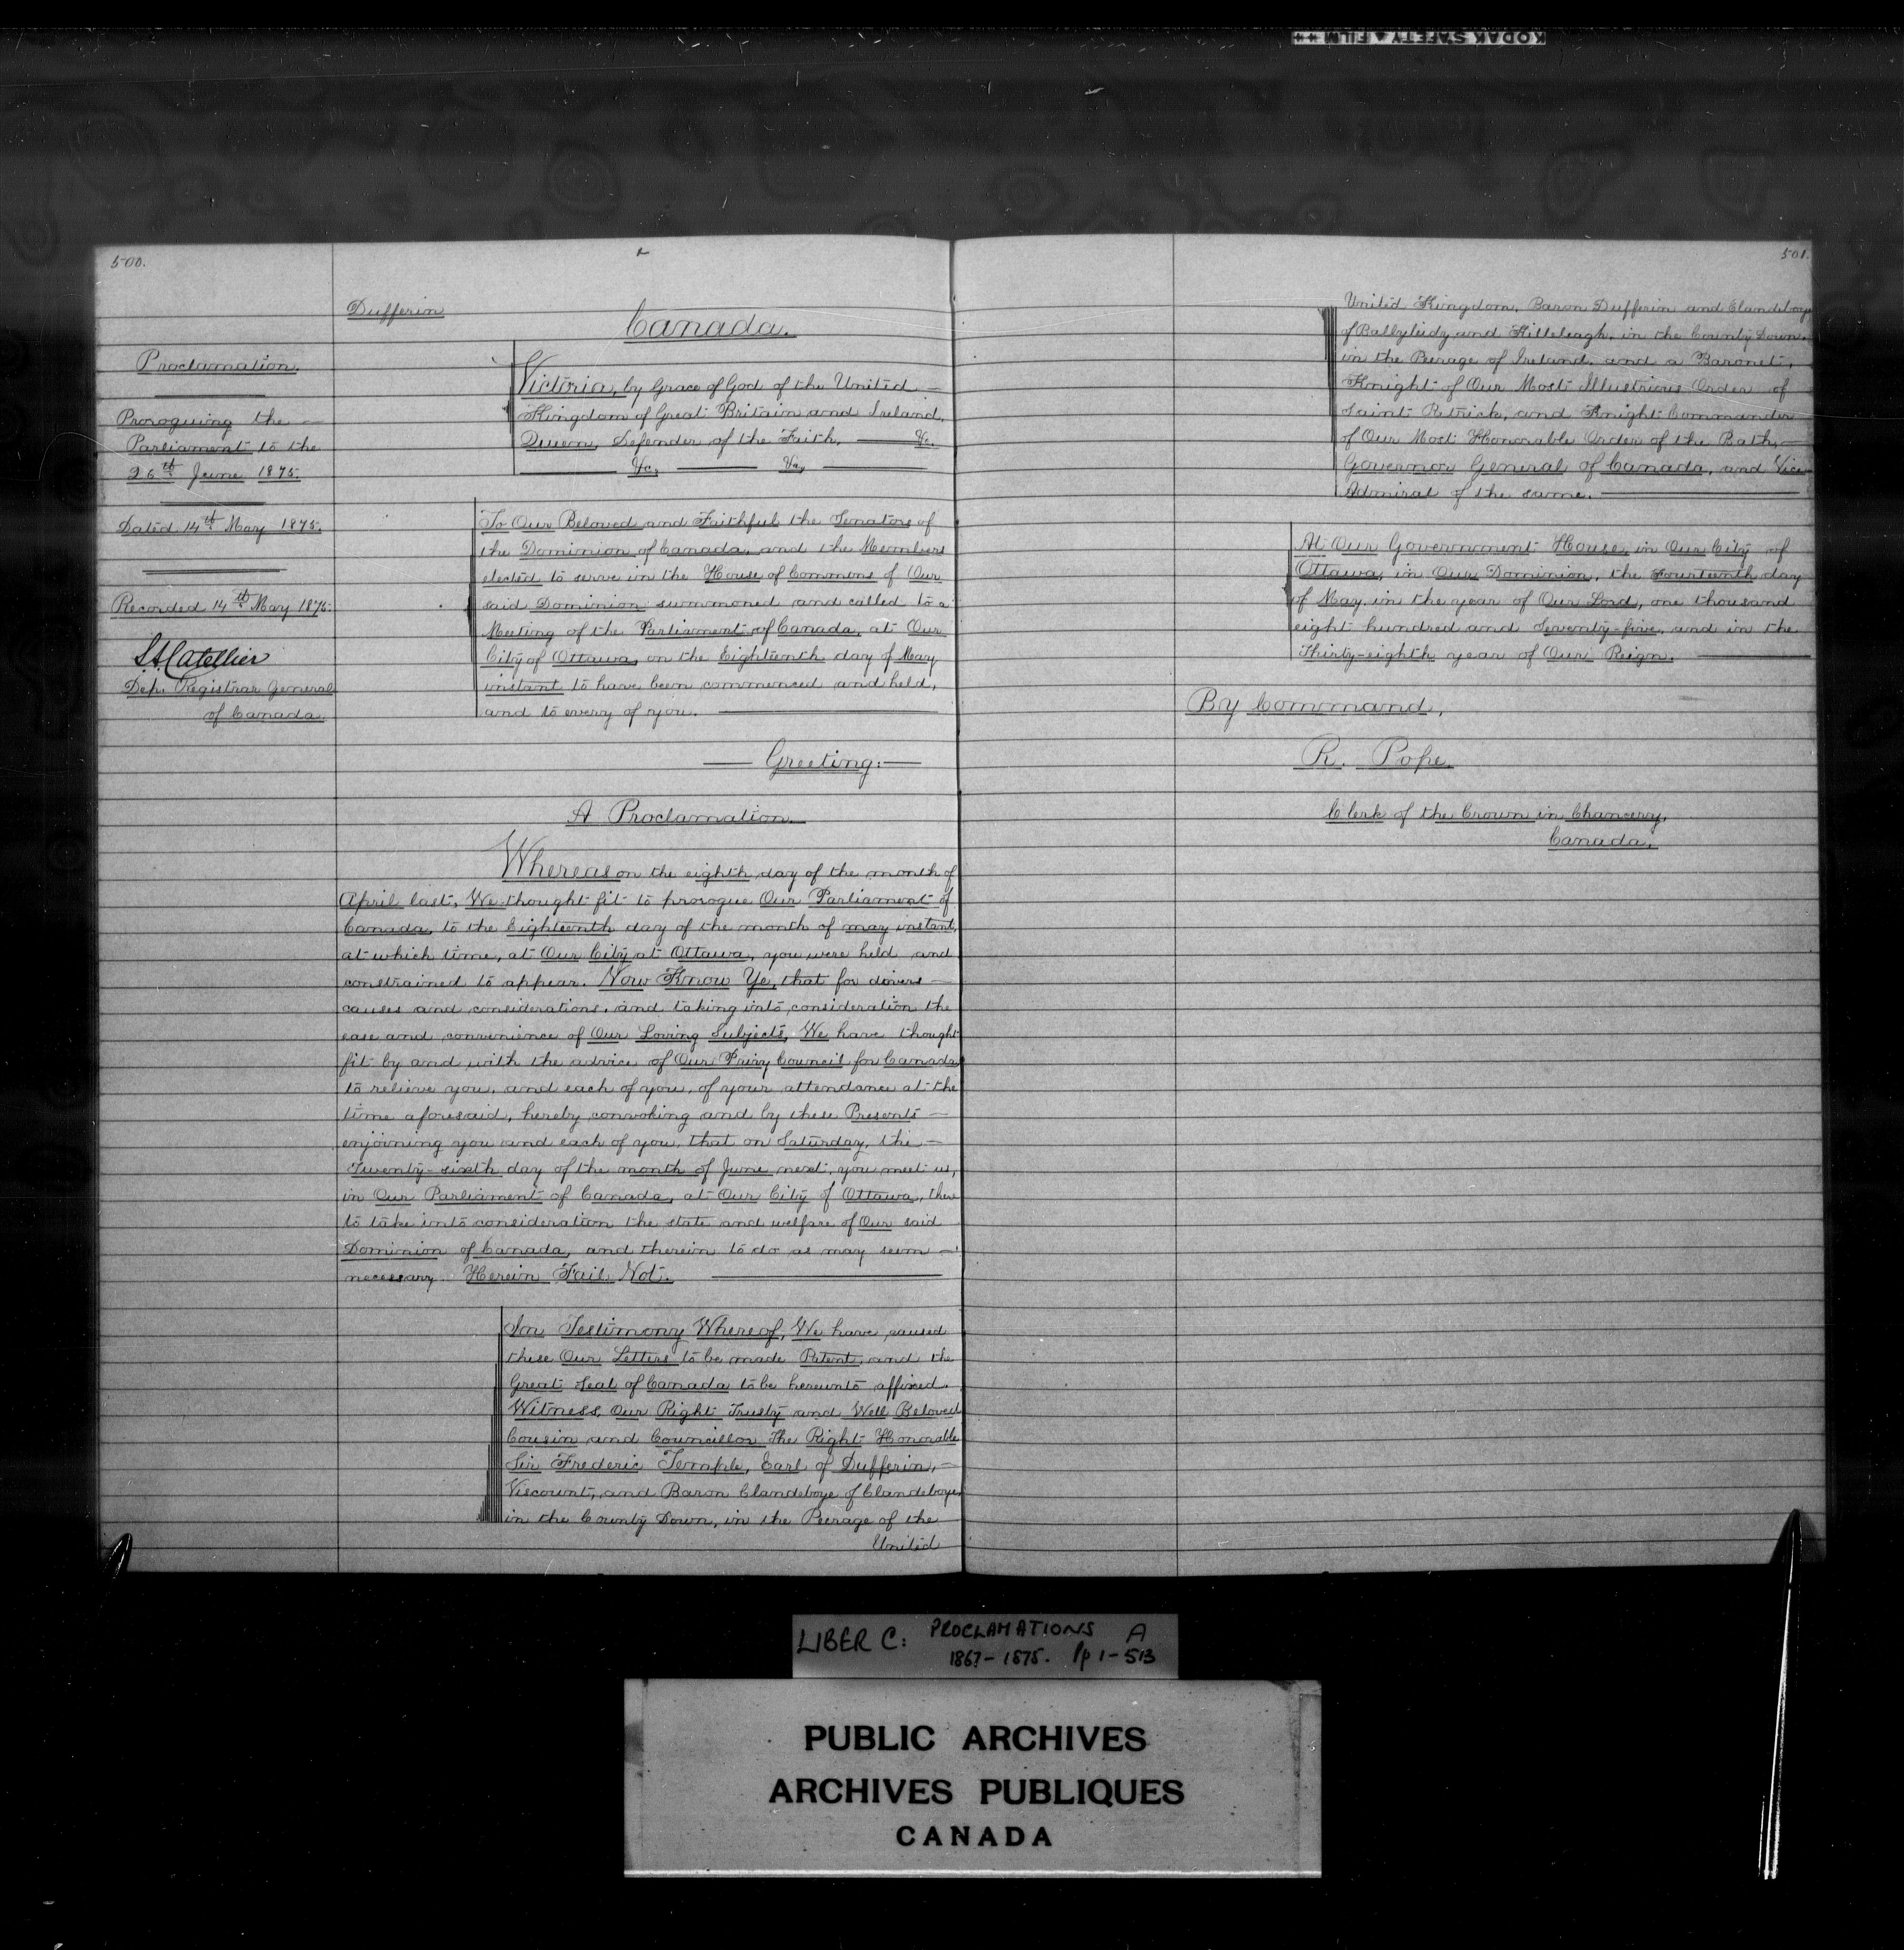 KODAK SAFETY FILM
500.
Dufferin
Canada.
Proclamation.
Proroguing the
Parliament to the
26th June 1875.
Dated 14th May 1875.
Recorded 14th May 1875.
Dep. Registrar General
of Canada
Victoria, by Grace of God of the United
Kingdom of Great Britain and Ireland,
Queen, Defender of the Faith, &c.
&c, &c,
To Our Beloved and Faithful the Senators of
the Dominion of Canada, and the Members
elected to serve in the House of Commons of Our
said Dominion summoned and called to a
Meeting of the Parliament of Canada, at Our
City of Ottawa, on the Eighteenth day of May
instant to have been commenced and held,
and to every of you.
Greeting:
A Proclamation.
Whereas on the eighth day of the month of
April last, We thought fit to prorogue Our Parliament of
Canada, to the Eighteenth day of the month of may instant,
at which time, at Our City at Ottawa, you were held and
constrained to appear. Now Know Ye, that for divers
causes and considerations, and taking into consideration the
ease and convenience of Our Loving Subjects, We have thought
fit by and with the advice of Our Privy Council for Canada
to relieve you, and each of you, of your attendance at the
time aforesaid, hereby convoking and by these Presents
enjoining you and each of you, that on Saturday, the
Twenty-sixth day of the month of June next, you meet us,
in Our Parliament of Canada, at Our City of Ottawa, there
to take into consideration the state and welfare of Our said
Dominion of Canada, and therein to do as may seem
necessary. Herein Fail Not.
In Testimony Whereof, We have caused
these Our Letters to be made Patent, and the
Great Seal of Canada to be hereunto affixed.
Witness, Our Right Trusty and Well Beloved
Cousin and Councillor The Right Honorable
Sir Frederic Temple, Earl of Dufferin,
Viscount, and Baron Clandeboye of Clandeboye,
in the County Down, in the Peerage of the
United
501.
United Kingdom, Baron Dufferin and Clandeboye
of Ballyleidy and Killeleagh, in the County Down,
in the Peerage of Ireland, and a Baronet,
Knight of Our Most Illustrious Order of
Saint Patrick, and Knight Commander
of Our Most Honorable Order of the Bath,
Governor General of Canada, and Vice-
Admiral of the same.
At Our Government House, in Our City of
Ottawa, in Our Dominion, the Fourteenth day
of May, in the year of Our Lord, one thousand
eight hundred and Seventy-five, and in the
Thirty-eighth year of Our Reign.
By Command,
R. Pope.
Clerk of the Crown in Chancery,
Canada.
LIBER C: PROCLAMATIONS A
1867-1875. pp 1-513
PUBLIC ARCHIVES
ARCHIVES PUBLIQUES
CANADA